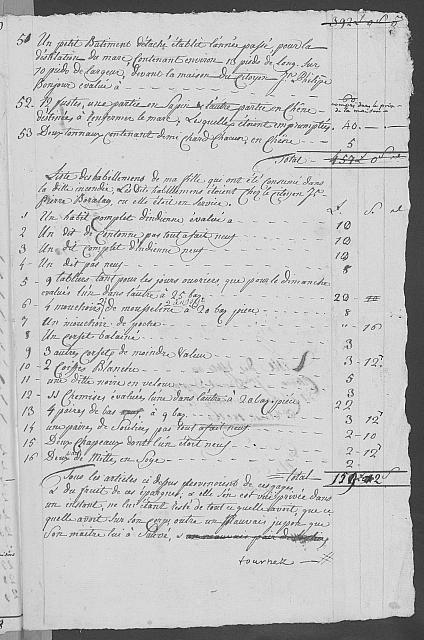 392 # 0 S
51 Un petit Batiment détaché établie l'année passé, pour la
distilation du marc, Contenant environ 18 pieds de long. sur
10 pieds de largeur, devant la maison du Citoyen J.s Philipe
Bonjour évalué à
60
compris dans le prix de la maison
52. 12 fustes, une partie en Sapin & l'autre partie en Chêne
destinée à Enfermer le marc, Lesquelles étoient empromptées. 40. -
53 Deux tonneaux, contenant deux Chars Chacun, en Chêne 5
Total 457 # 0 S
Liste des habillemens de ma fille qui ont été consumé dans
la ditte incendie, Lesdits habillemens étoient chez le citoyen
Pierre où elle étoit en service. L. S
1 Un habit complet d'indienne évalué à 10
2 Un dit de Cotonne pas tout à fait neuf 12
3 Un dit Complet d'indienne neuf 12
4 Un dit pas neuf 8
5 9 tabliers tant pour les jours ouvriers que pour le dimanche
évalués l'un dans l'autre à 25 baz 20
6 4 mouchoirs de mousseline à 20 baz piece 8
7 Un mouchoire de poche " - 16
8 Un corset balainé 8
9 3 autres corsets de moindre valeur 3 - 12
10 2 Coiffes Blanche 3
11 une ditte noire en velour 5
12 11 Chemises évaluées l'une dans l'autre à 20 baz piece 22
13 4 paires de bas à 9 baz 3 12
14 une paire de Souliers pas tout à fait neuf 2 - 10
15 Deux Chapeaux dont l'un étoit neuf 2 - 12
16 Deux de Mitte, en Soye 2
total
Tous les articles ci dessus provenoient de ses gages
& du fruit de ses épargnes, & elle s'en est vue privée dans
un instant, ne lui étant resté de tout ce quelle avoit, que ce
quelle avoit sur son corps, outre un mauvais jupon que
son maitre lui à sauvé,
tournez